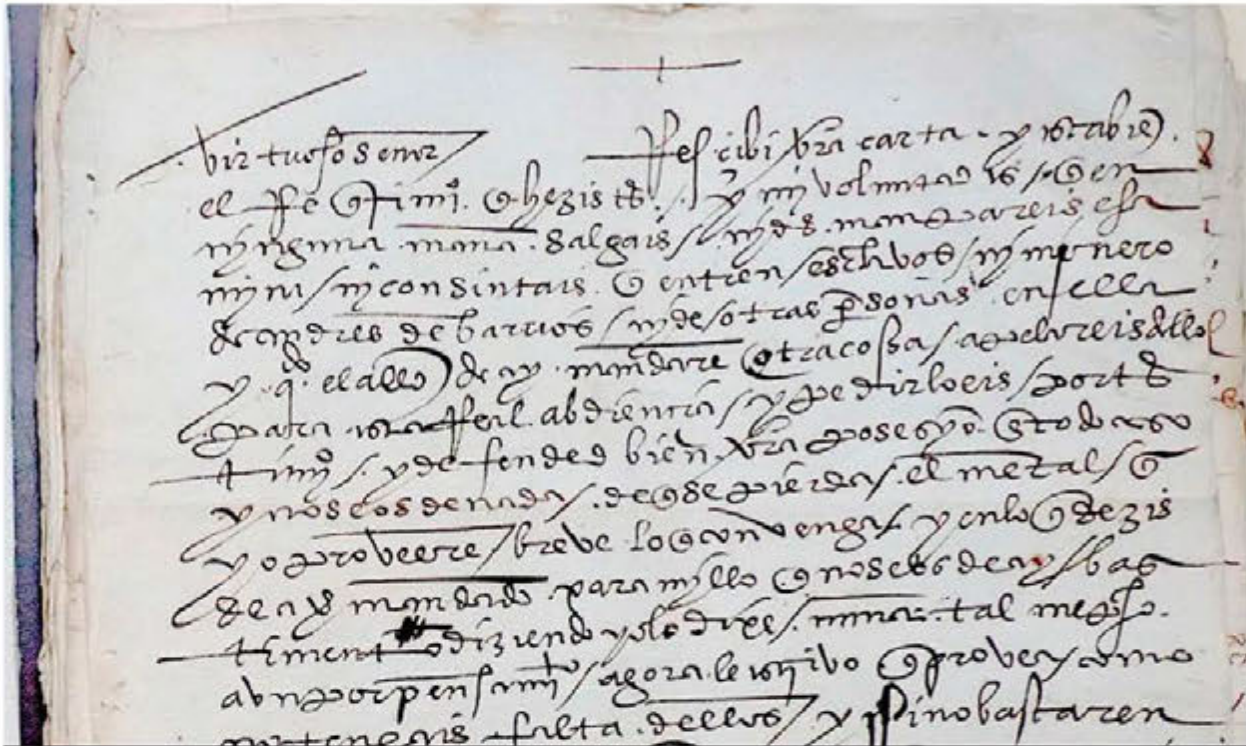 virtuoso señor Resçibi vra carta. y esta bien
el requerimi.º q hezistes. y mi voluntad es q en
ninguna mana salgais ni des manpareis esa
mina ni consintais q entren esclavos ni minero
de andres de barrios ni de otras personas en ella
y q.do el allde de ay mandare otra cosa apelareis dello
para esta Real abdiencia y pedirloeis por t.º
y defended bien vra posesyon q todo caso
y no se os de nada de q se pierda el metal q
yo proveere breve lo q convenga y en lo q dezis
mandado para myllo q no se os de ay bas
timento diziendo yo lo dixe nunca tal me paso
avn por pensami.to agora le escrivo q provea como
no tengais falta dellos y si no bastaren